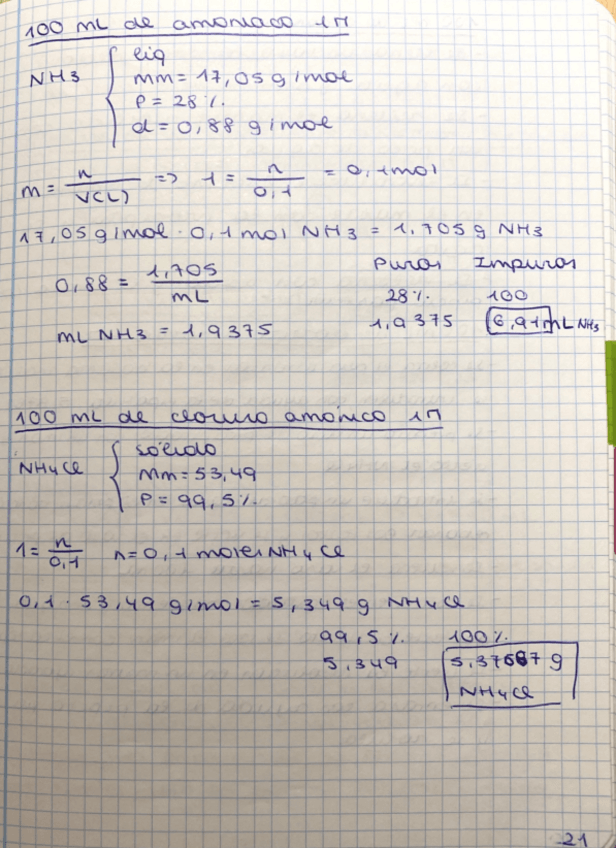 100 mL de amoniaco 1M
liq
NH3 mm = 17,05 g/mol
P = 28%.
d = 0,88 g/mol
m = n/V(L) => 1 = n/0,1 = 0,1mol
17,05 g/mol · 0,1 mol NH3 = 1,705 g NH3
0,88 = 1,705/mL
Puros Impuros
28%. 100
mL NH3 = 1,9375
1,9375 6,91mL NH3
100 mL de cloruro amónico 1M
NH4Cl
sólido
Mm = 53,49
P = 99,5%.
1 = n/0,1 n = 0,1 moles NH4Cl
0,1 · 53,49 g/mol = 5,349 g NH4Cl
99,5%. 100%.
5,349 5,37687 g
NH4Cl
21